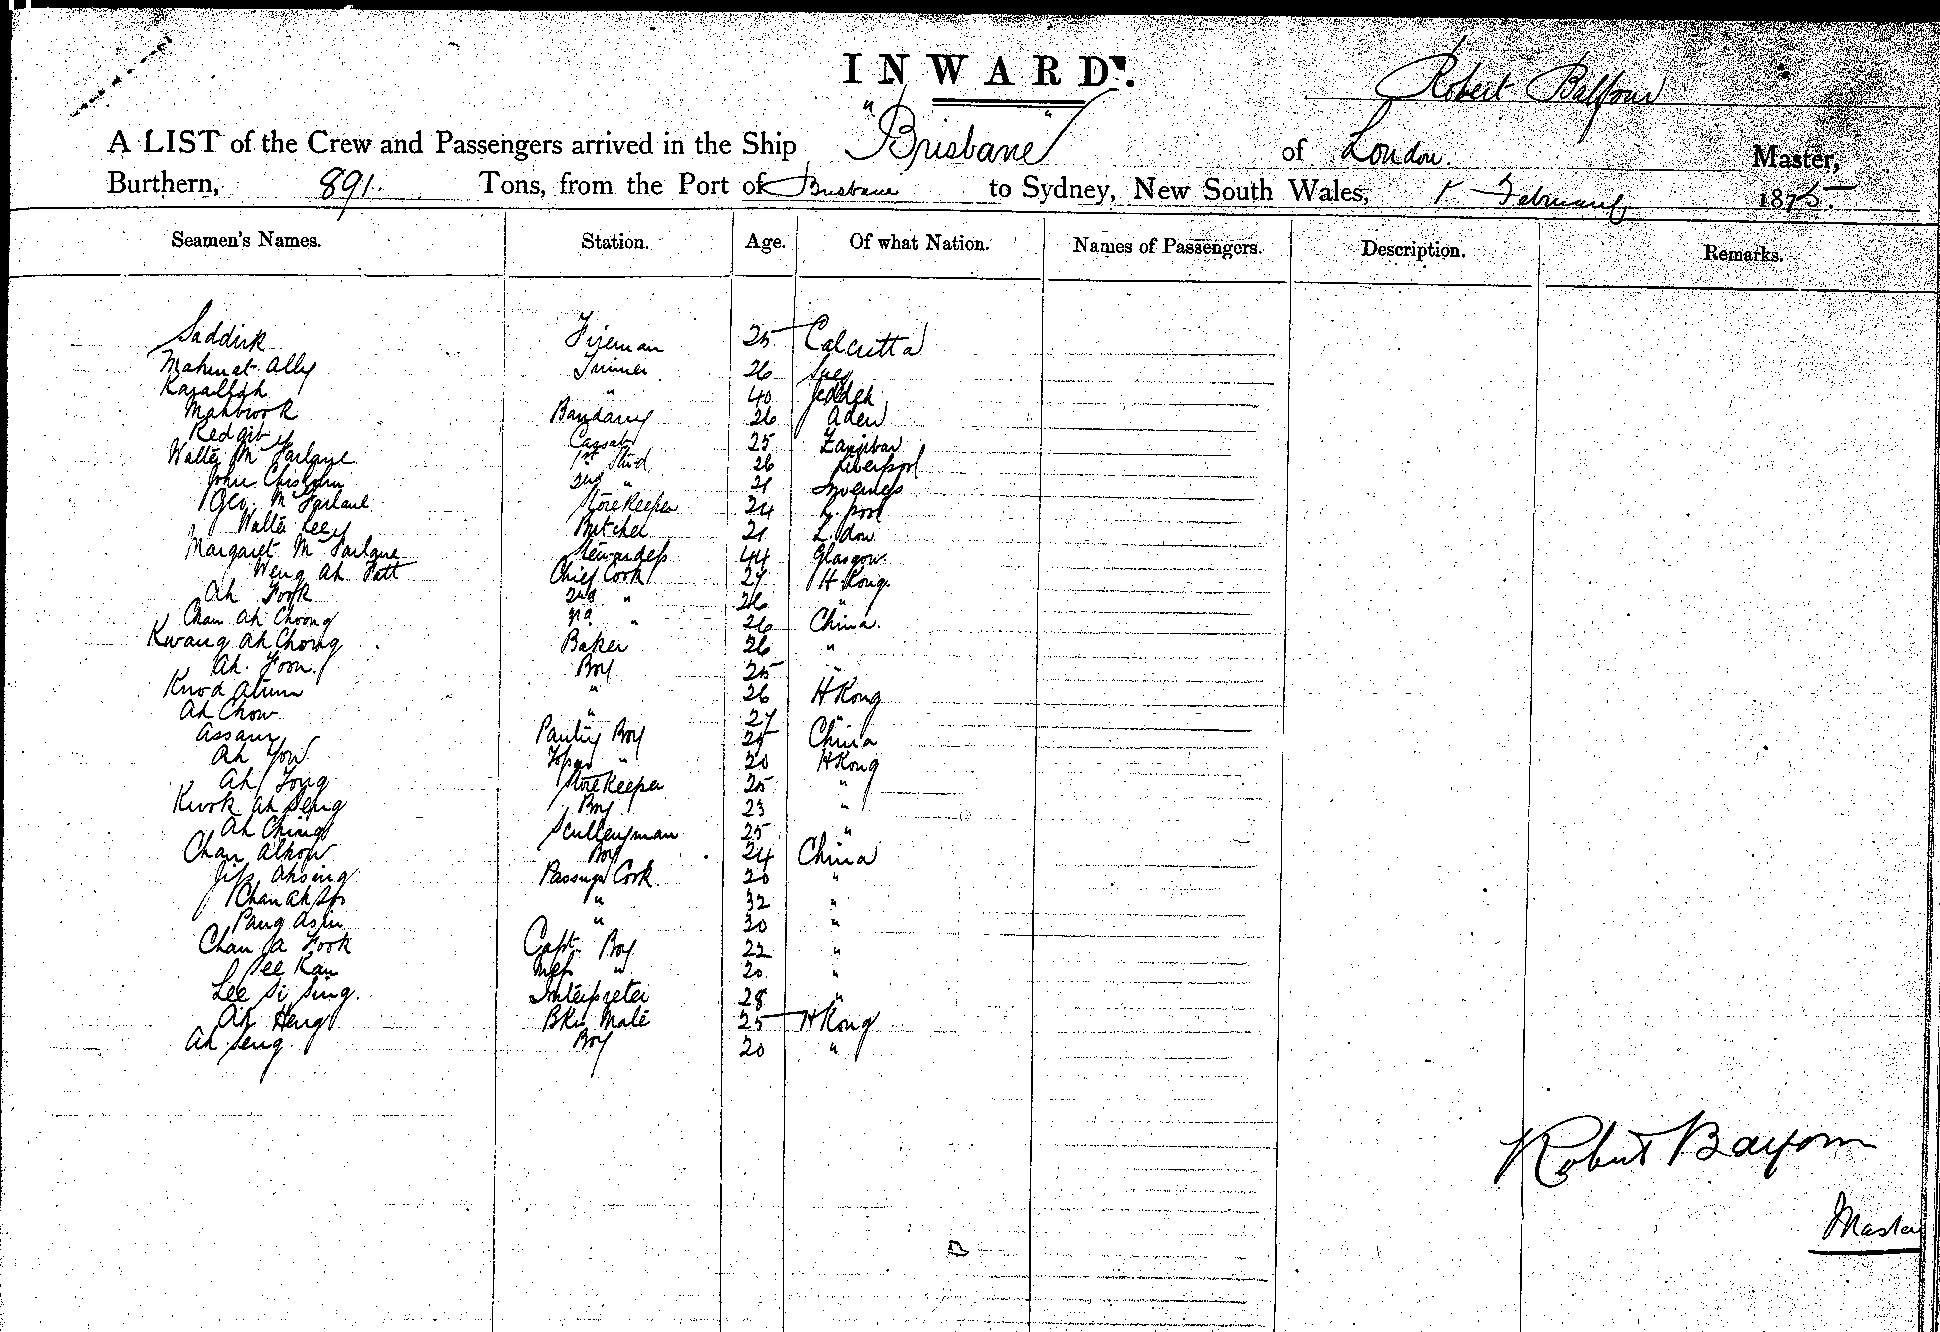 INWARD.
Robert Balfour
A LIST of the Crew and Passengers arrived in the Ship "Brisbane" of London. Master,
Burthern, 891. Tons, from the Port of Brisbane to Sydney, New South Wales, 1 February 1875.
Seamen's Names. Station. Age. Of what Nation. Names of Passengers. Description. Remarks.
Saddick Fireman 25 Calcutta
Mahmat Ally Trimer 26 Suez
Kazallah " 40 Jeddah
Mahbrook Bandary 26 Aden
Redgib Cassab 25 Zanzibar
Walter McFarlane 1st Stwd 26 Liverpool
John Chisholm 2nd " 21 Inverness
Geo. McFarlane Storekeeper 24 L.pool
Walter Lee Butcher 21 L.don
Margaret McFarlane Stewardess 44 Glasgow.
Weng Ah Fatt Chief Cook 27 H Kong.
Ah Fook 2nd " 26 "
Chan Ah Choong 3rd " 26 China.
Kwang Ah Chong Baker 26 "
Ah Foon. Boy 25 "
" 26 H Kong
Ah Chow " 27 "
Assam Pantry Boy 25 China
Ah You " 20 H Kong
Ah Tong Storekeeper 25 "
Kwok Ah Seng Boy 23 "
Ah Ching Sculleryman 25 "
Chan Boy 24 China
Ahsing Passngr Cook 20 "
Chan Ah " 32 "
Pang " 30 "
Chan A Fook Capt. Boy 22 "
See Kan Mess " 20 "
Lee Si Sing. Interpreter 28 "
Ah Heng Bkrs Mate 25 H Kong
Ah Seng Boy 20 "
Robert Balfour
Master